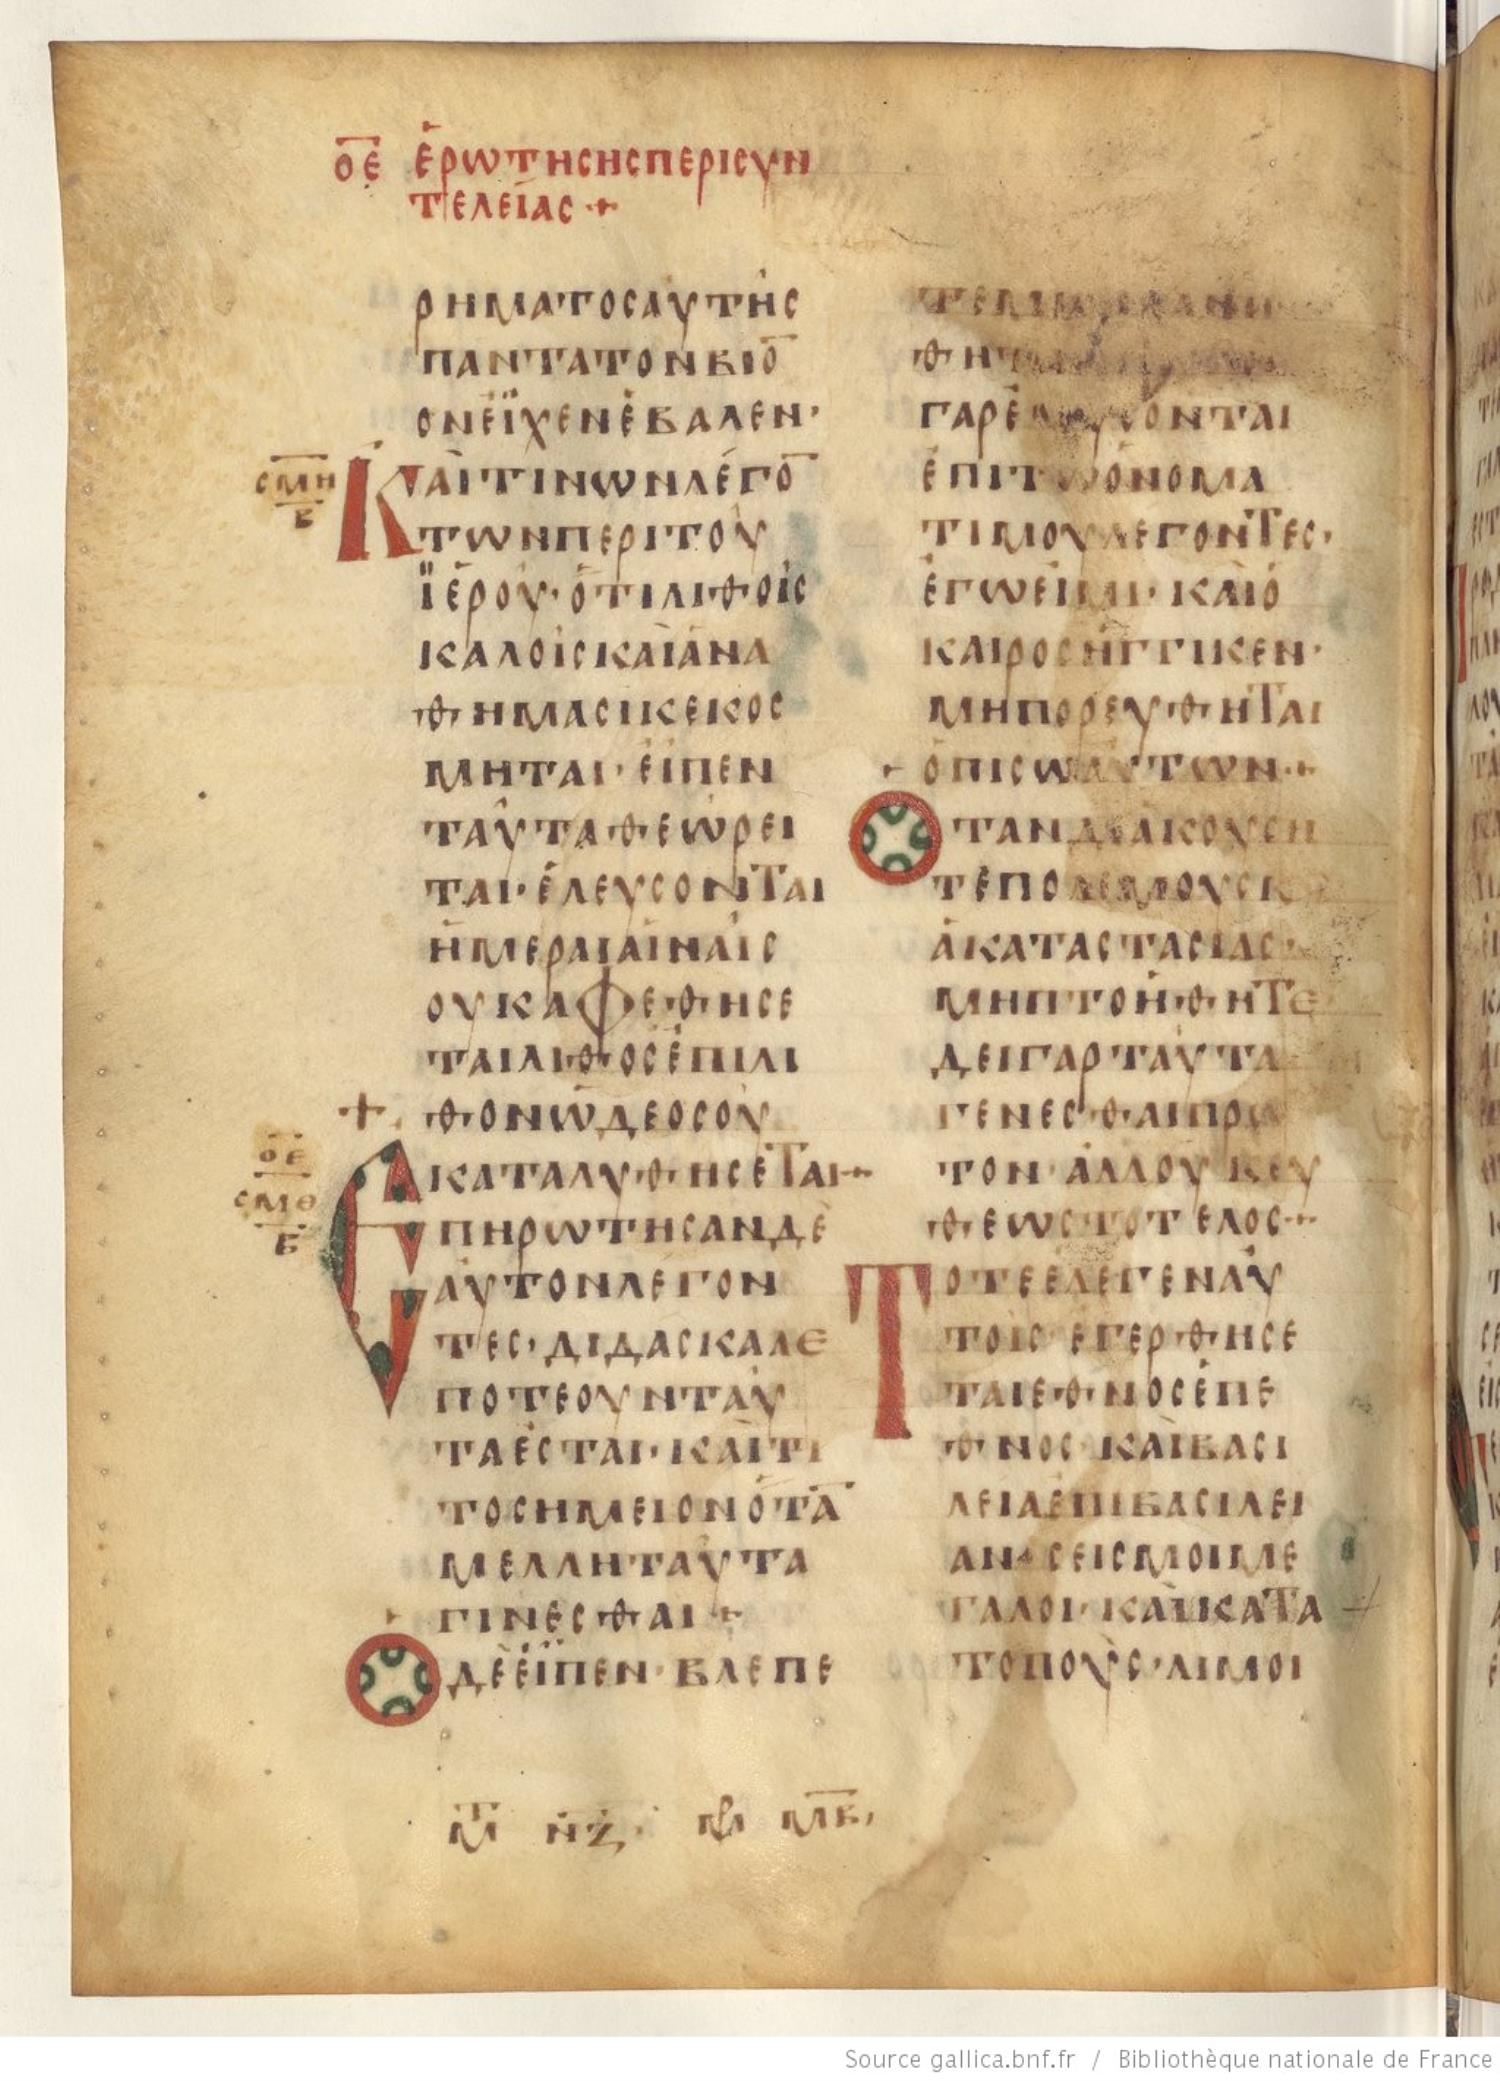 ο̅ε̅ ἐρωτησησπερισυν
τελείας +
ρηματοσαυτῆς
πανταтονβιο̅
ονεἶχενἔβαλεν·
σ̅μ̅η̅
β
Καὶτινωνλέγο̅
τωνπεριτοῦ
ϊἐρου·ὅτιλιθοις
καλοῖςκαὶἀνα
θημασικεκος
μηται·εἶπεν
ταῦταθεωρει
ται·ἐλευσονται
ἡμεραιἀιναἱς
ουκαφεθησε
ταιλιθοσἐπιλι
+ θονωδεοσοὐ
καταλυθησεται+
ο̅ε̅
σ̅μ̅θ̅
β
Επηρωτησανδὲ
αὐτονλέγον
τες·διδασκαλε
ποτεουνταῦ
ταἐσται·καὶτι
τοσημειονὅτα̅
μελληταῦτα
γινεσθαι+
Οδὲεἶπεν·βλεπε
γαρἐλευσονται
ἐπιτωὀνομα
τιμουλεγοντες·
ἐγωεἰμι·καιὁ
καιροσἠγγικεν·
μηπορευθηται
ὀπισωαὐτων·+
Οτανδεακουση
τεπολεμουσκ
ἀκαταστασιας·
μηπτοηθητε
δειγαρταῦτα
γενεσθαιπρω
τον·ἀλλουκευ
θεωστοτελος+
Τοτεἐλεγεναυ
τοις·εγερθησε
ταιεθνοσἐπε
θνος·καὶβασι
λειαἐπιβασιλει
αν·σεισμοιμε
γαλοι·καὶκατα
τοπους·λιμοι
μ̅β̅